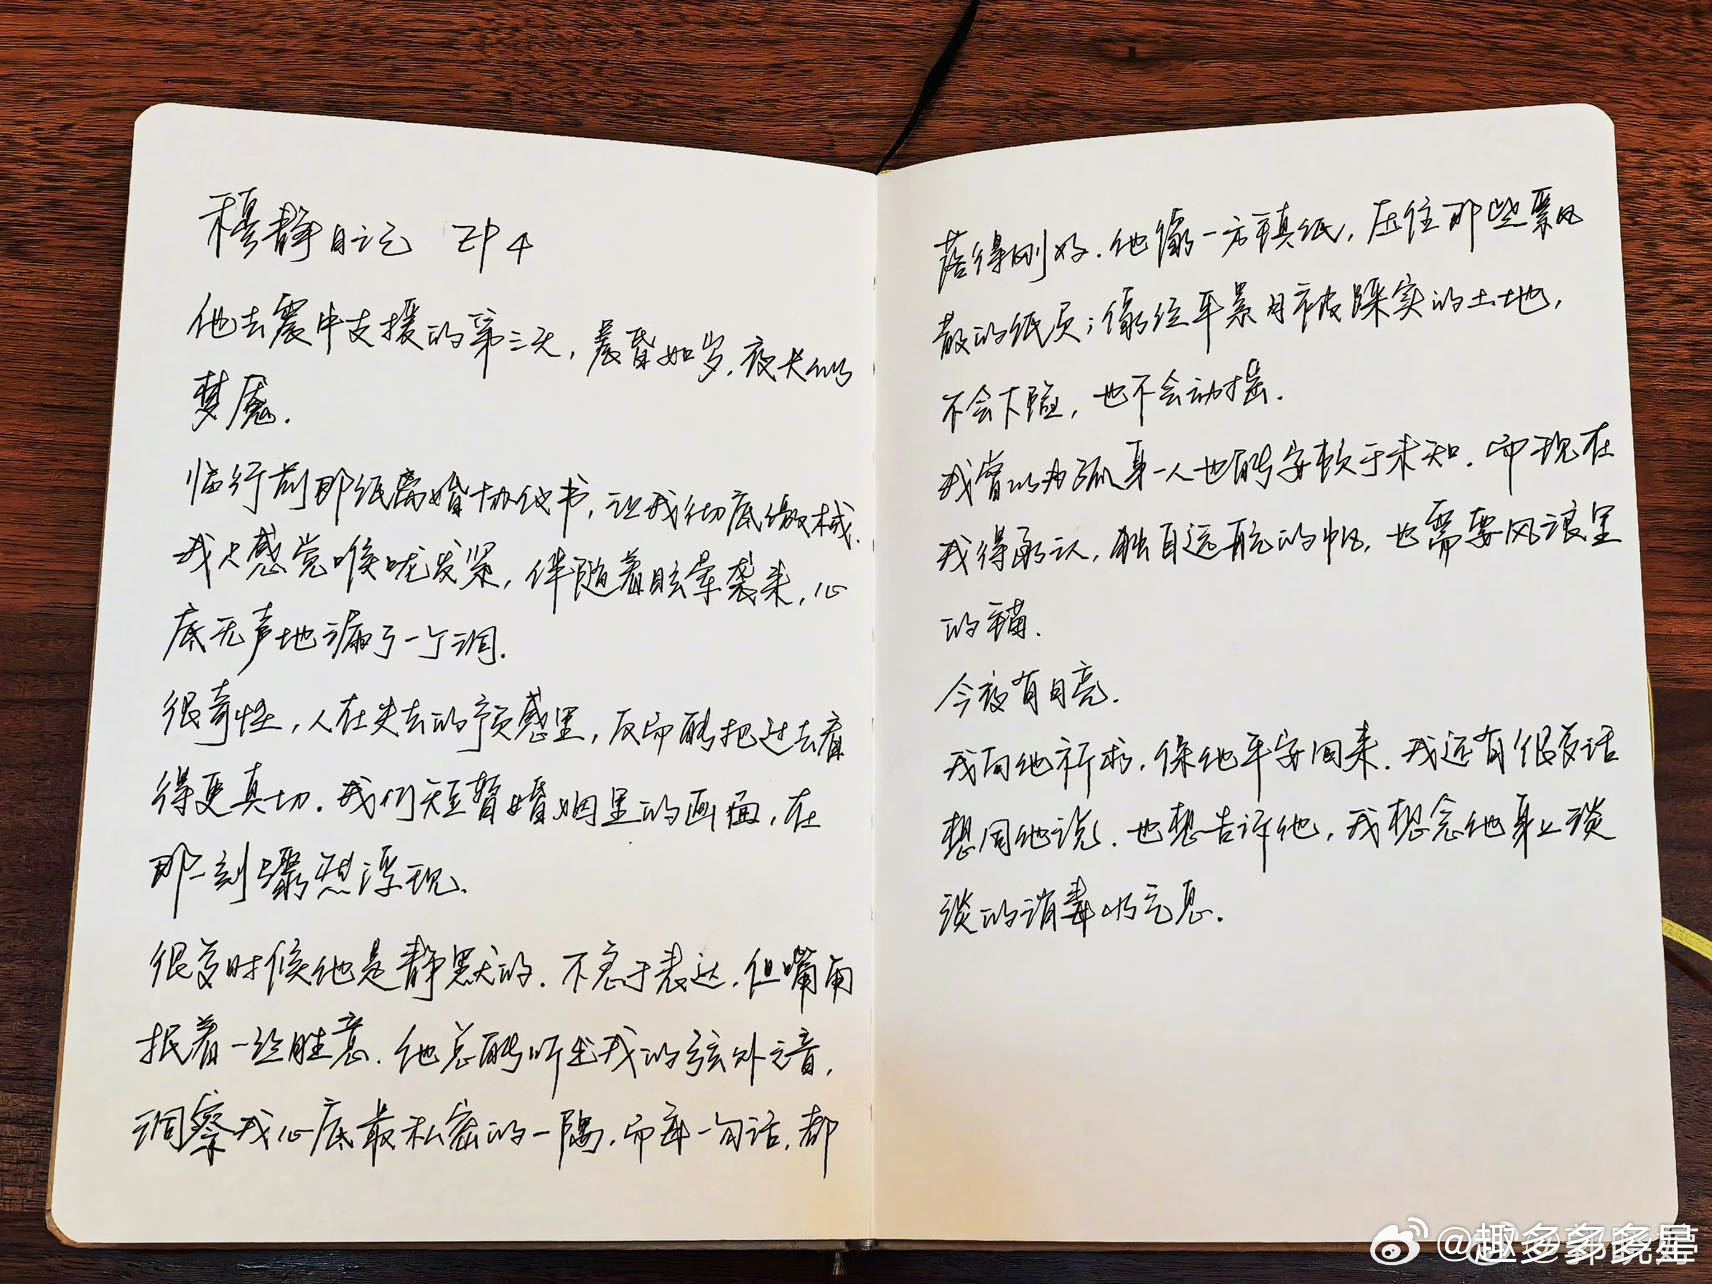 穆静日记 EP4
他去震中支援的第三天，晨昏如岁，夜夜如
梦魇.
临行前那纸离婚协议书，让我彻底缴械.
我只感觉喉咙发紧，伴随着眩晕袭来，心
底无声地漏了一个洞.
很奇怪，人在失去的预感里，反而能把过去看
得更真切. 我们短暂婚姻里的画面，在
那一刻骤然浮现.
很多时候他是静默的. 不急于表达，但嘴角
抿着一丝胜意. 他总能听出我的弦外之音，
洞察我心底最私密的一隅. 而每一句话，都
落得刚好. 他像一方镇纸，压住那些飘风
散的纸页；像经年累月被踩实的土地，
不会下陷，也不会动摇.
我曾以为孤身一人也能安于未知. 而现在
我得承认，独自远航的帆，也需要风浪里
的锚.
今夜有月亮.
我向他祈求，保他平安回来. 我还有很多话
想同他说. 也想告诉他，我想念他身上淡
淡的消毒水气息.